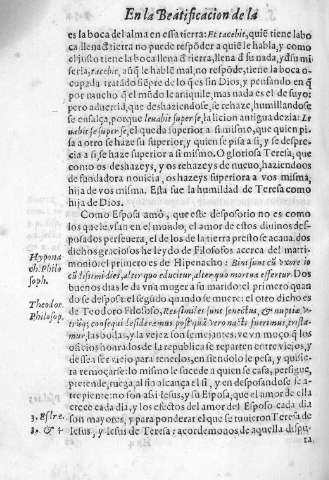 En la Beatificacion de la
es la boca del alma en essa tierra: Et tacebit, quié tiene la bo
ca llena đ tierra no puede respõder a quié le habla, y como
el justo tiene la boca llena đ tierra, llena đ su nada, y mi
seria, tacebit, aunq̃ le hablé mal, no respõde, tiene la boca o-
cupada tratãdo siẽpre de lo que sin Dios, y pensando en q̃
por mucho q̃ el mũdo le aniquile, mas nada es el de suyo:
pero aduertid, que deshaziendose, se rehaze, humillandose
se ensalça, porque leuabit super se, la licion antigua dezia: Le
uabit se super se, el queda superior a si mismo, que quien pi-
sa a otro se haze su superior, y quien se pisa a si, y se despre-
cia a si, se haze superior a si mismo. O gloriosa Teresa, que
como os deshazeys, y os rehazeys de nueuo, haziendoos
de fundadora nouicia, os hazeys superior a vos misma,
hija de vos misma. Esta fue la humildad de Teresa como
hija de Dios.
Como Esposa amò, que este desposorio no es como
los que se vsan en el mundo, el amor de estos diuinos des-
posados perseuera, el de los de la tierra presto se acaua. dos
dichos graciosos he leydo de Filosofos acerca del matri-
monio: el primero es de Hiponacho: Bini sunt cũ vxore io
cũdissimi dies, alter quo educitur, alter quo mortua effertur. Dos
buenos dias le da vna muger a su marido: el primero quan
do se desposa: el segũdo quando se muere: el otro dicho es
de Teodoro Filosofo, Res similes sunt senectus, & nuptiæ,
consequi desideramus, postquã vero nacti fuerimus, trista-
mur, las bodas, y la vejez son semejantes: ve vn moço q̃ los
oficios honrados de la republica se reparten entre viejos, y
dessea ser viejo para tenerlos, en siendolo le pesa, y quisie-
ra remoçarse: lo mismo le sucede a quien se casa, persigue,
pretende, ruega, al fin alcança el si, y en desposandose se a-
rrepiente: no son assi Iesus, y su Esposa, que el amor de ella
crece cada dia, y los efectos del amor del Esposo cada dia
son mayores, y para ponderar el que se tuuieron Teresa de
Iesus, y Iesus de Teresa: acordemonos de aquella dispu-
ta
Hypona
ch. Philo
soph.
Theodor.
Philosop.
3. Esdre.
3. & 4